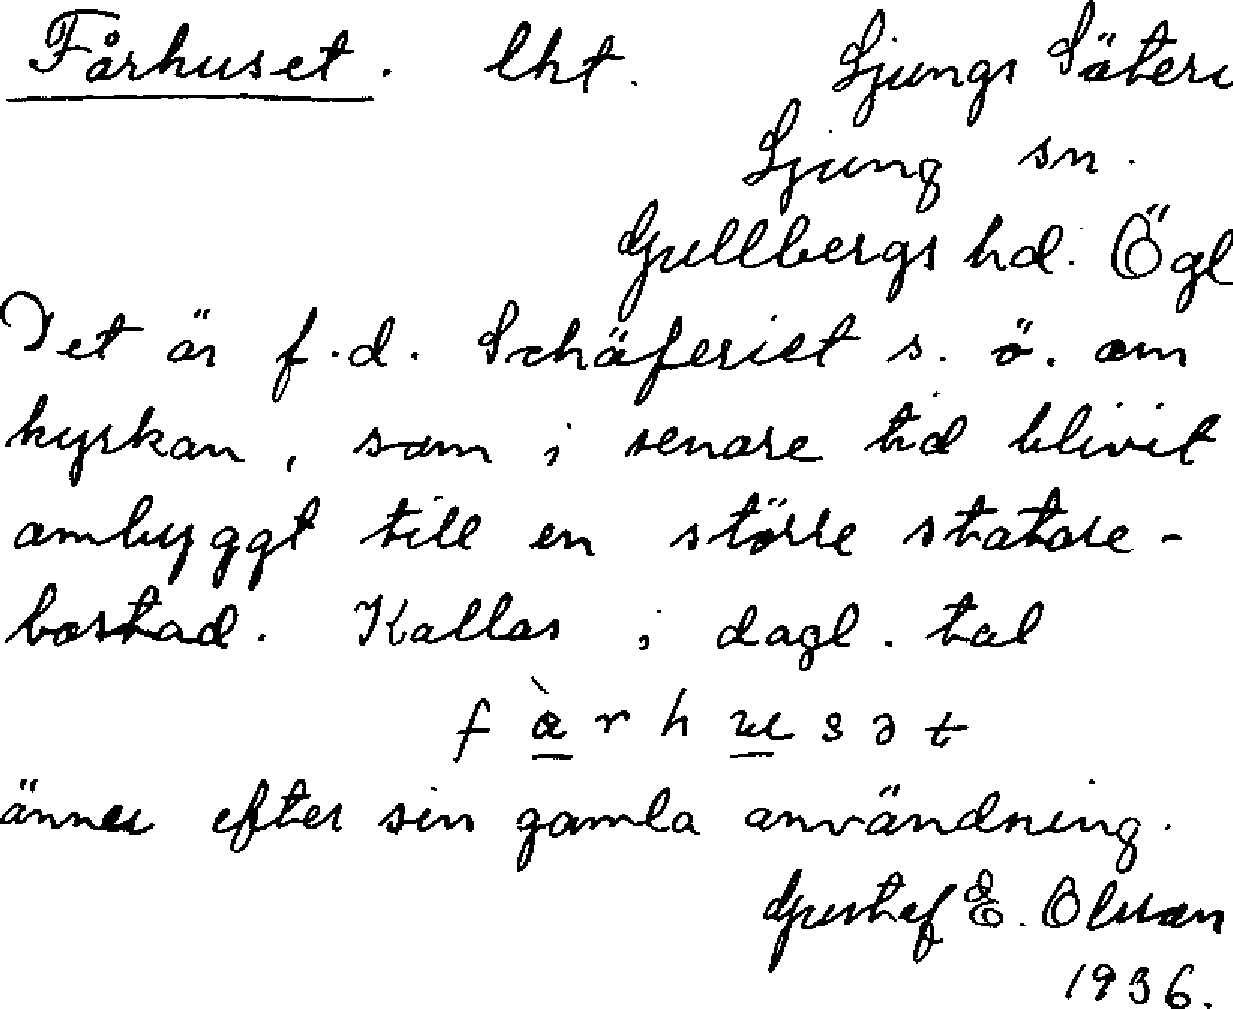 Fårhuset. lht. Ljungs Säteri
Ljung sn.
Gullbergs hd. Ögl
Det är f.d. Schäferiet s. ö. om
kyrkan, som i senare tid blivit
ombyggt till en större statare-
bostad. Kallas i dagl. tal
f à r h u s ə t
ännu efter sin gamla användning.
Gustaf E. Olsson
1936.